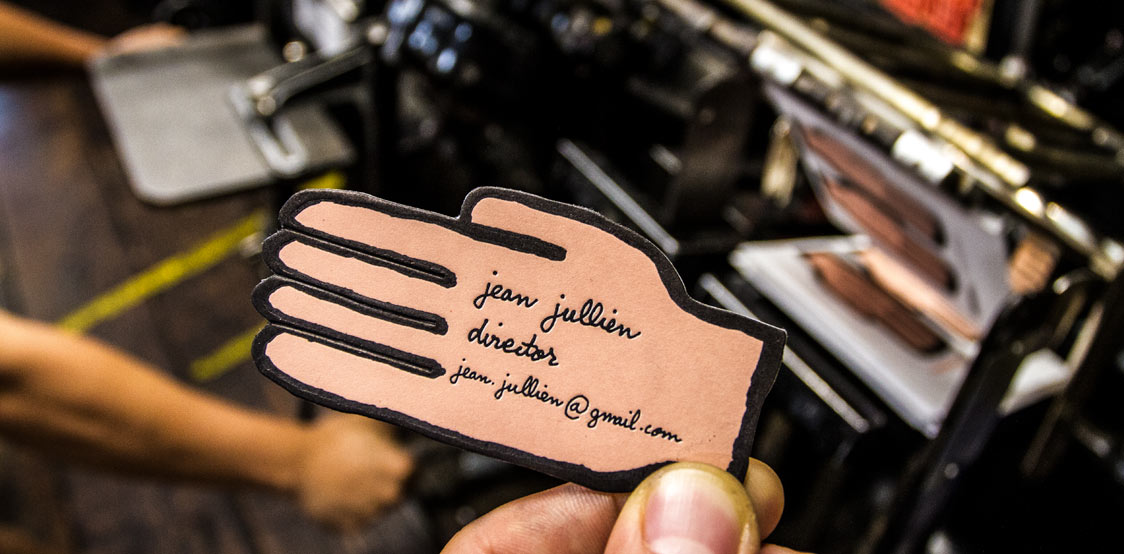 jean jullien
director
jean.jullien@gmail.com